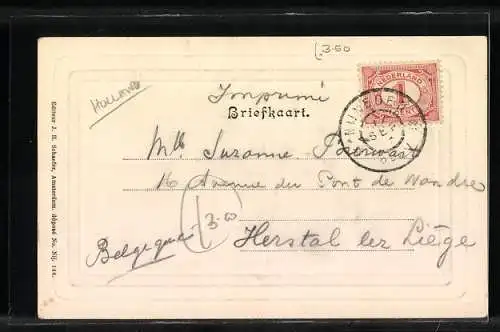 (3.50
HOLLAND
NEDERLAND
1
CENT
Imprimé
Briefkaart.
NIJMEGEN
SEP
Mlle Suzanne
16 Avenue du Pont de Wandre
3.50
Belgique
Herstal lez Liège
Editeur J. H. Schaefer, Amsterdam, déposé No. Nij. 144.